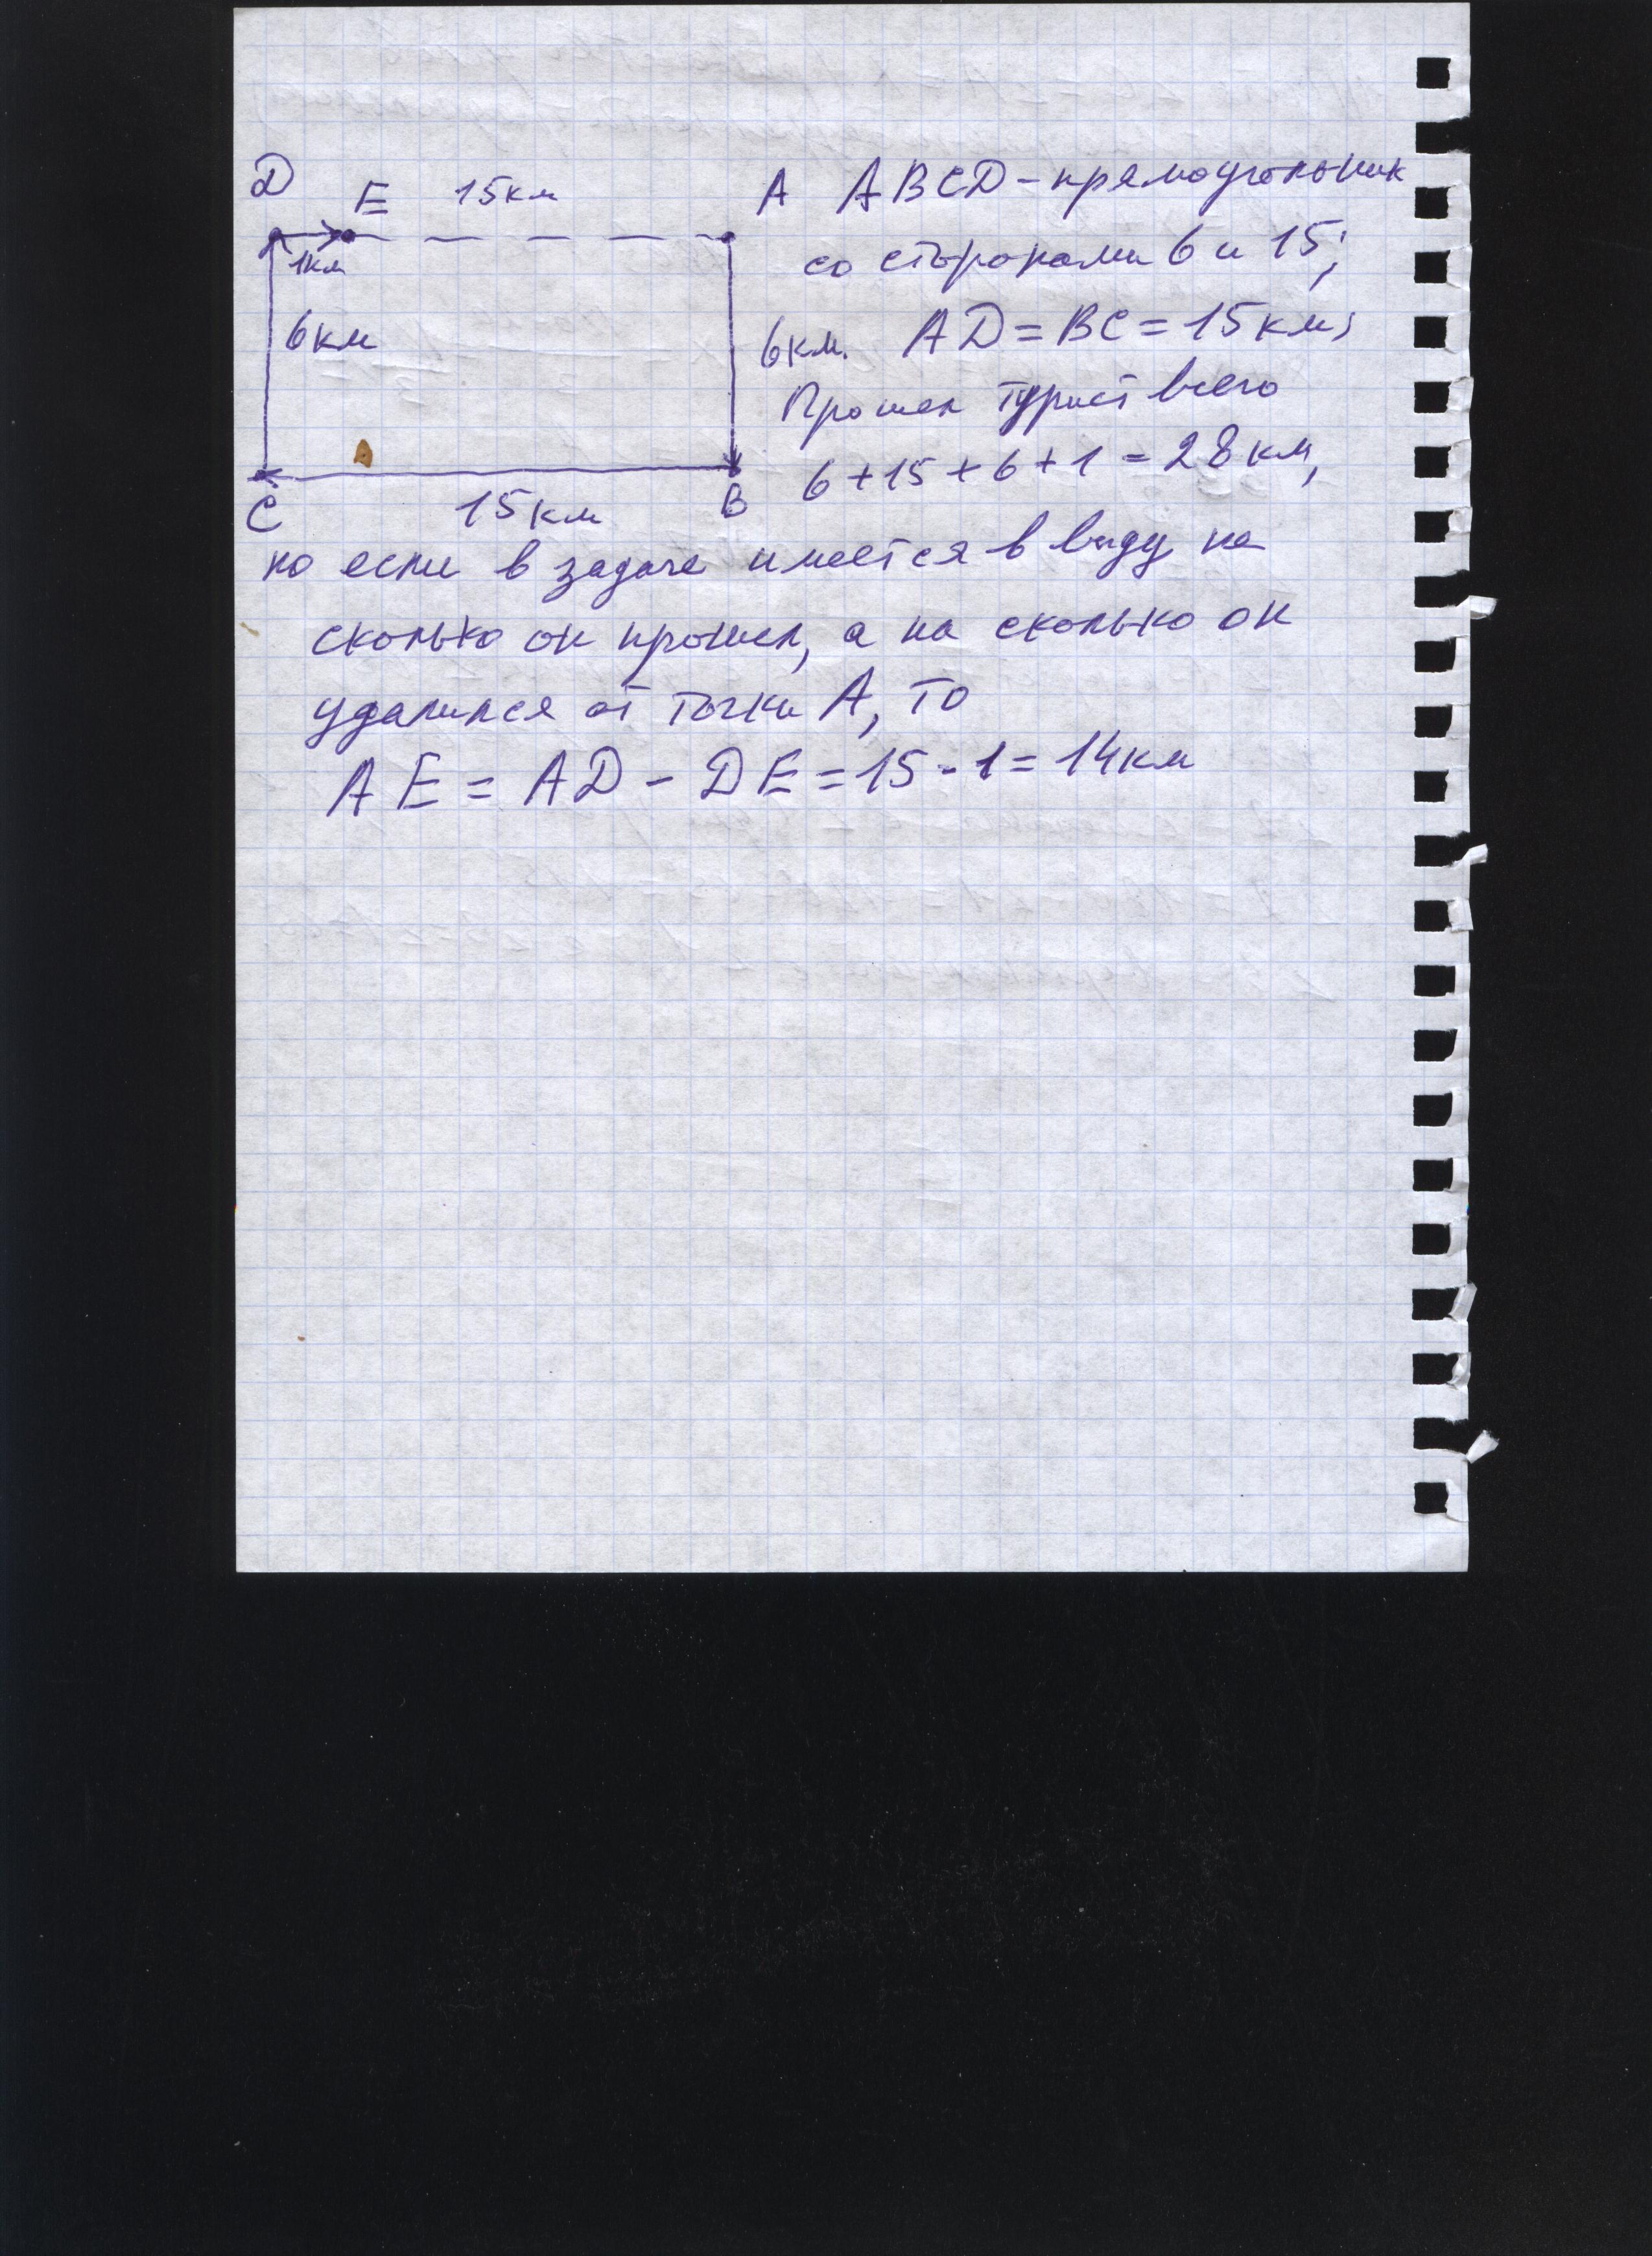 D E 15км A ABCD - прямоугольник
1км со сторонами 6 и 15;
6км 6км. AD = BC = 15км;
Прошел турист всего
6 + 15 + 6 + 1 = 28 км,
C 15км B
но если в задаче имеется в виду не
сколько он прошел, а на сколько он
удалился от точки A, то
AE = AD - DE = 15 - 1 = 14км